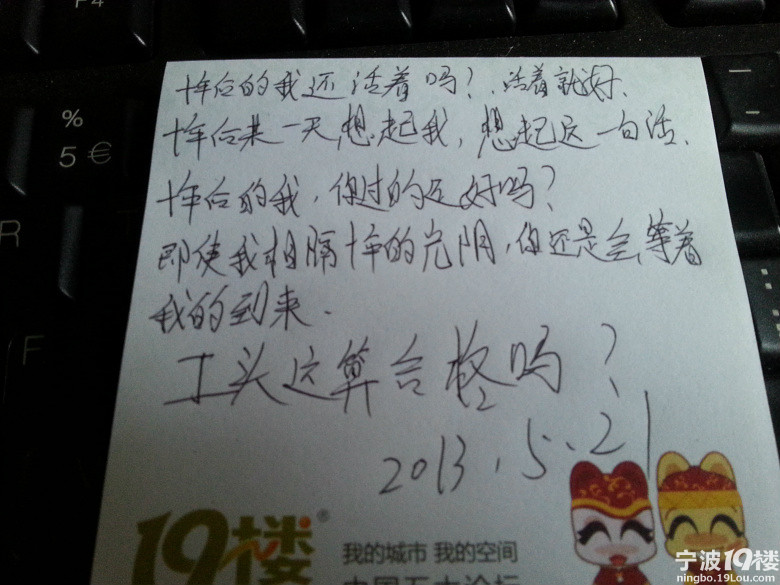 十年后的我还活着吗？活着就好.
十年后某一天想起我，想起这一句话.
十年后的我，你过的还好吗？
即使我相隔十年的光阴，你还是会等着
我的到来.
工头这算合格吗？
2013.5.21
19楼®
我的城市 我的空间
中国五大论坛
F4
%
5 €
R
F
宁波19楼
ningbo.19Lou.com